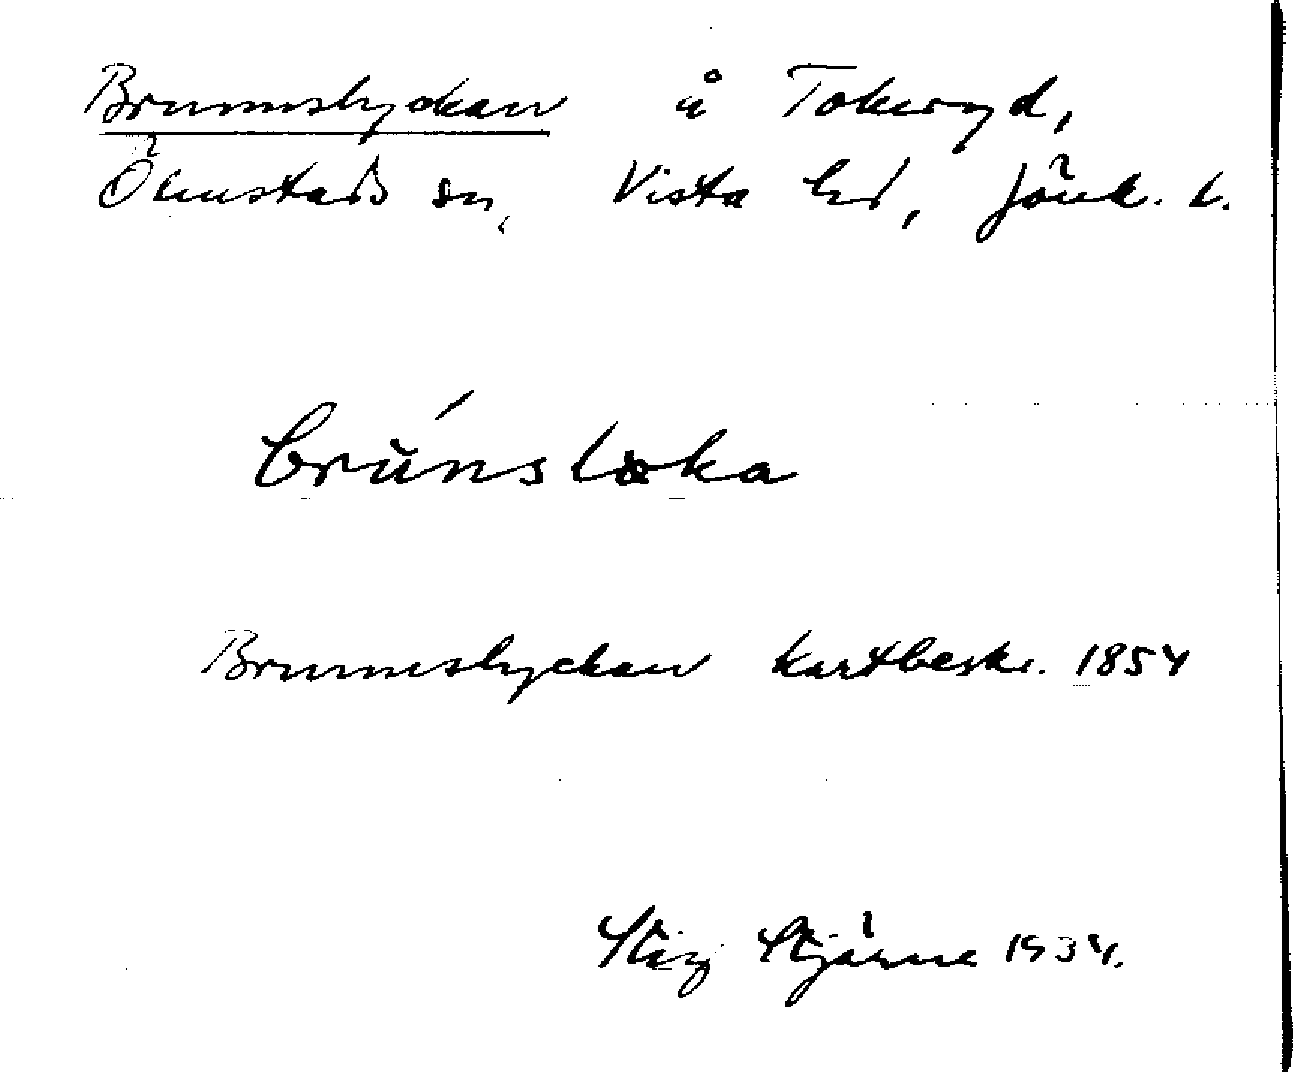 Brunnslyckan å Tokeryd,
Ölmstads sn, Vista hd, Jönk. l.
brúnsløka
Brunnslyckan kartbeskr. 1854
Stig Stjärne 1934.